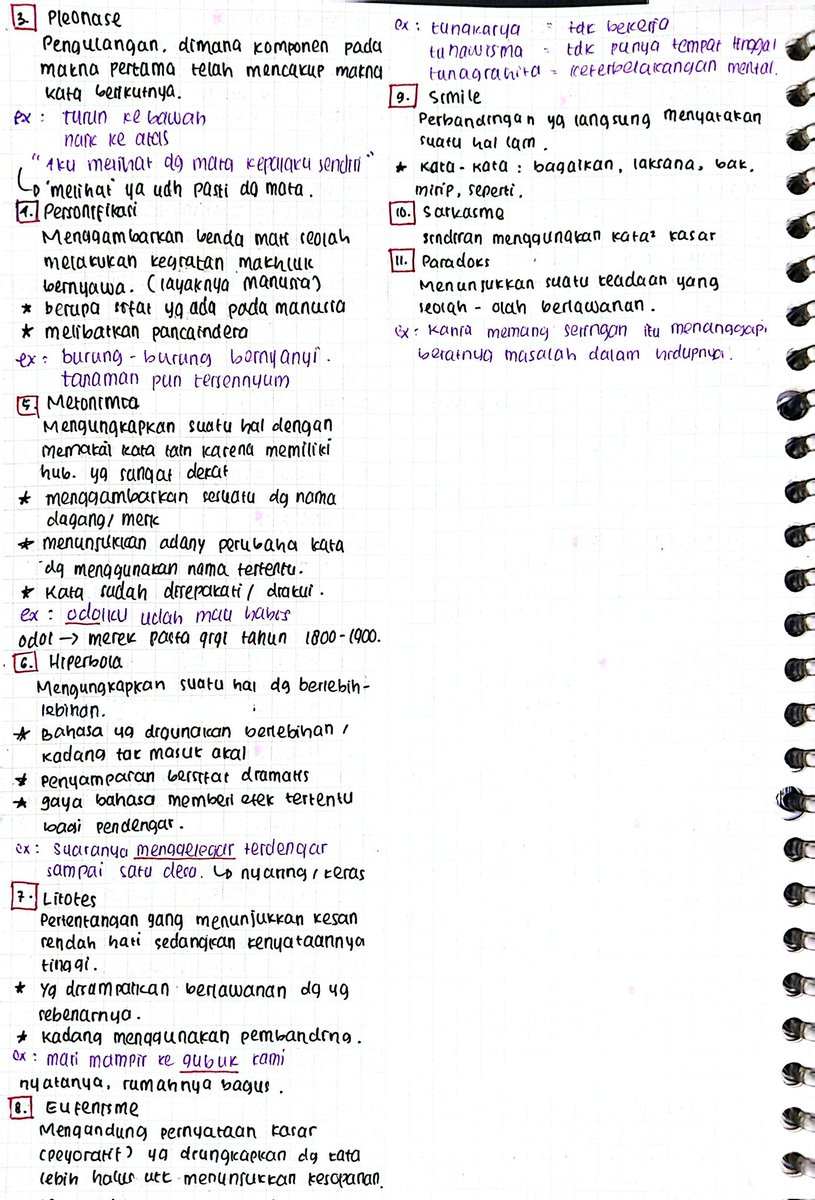 3. Pleonase
Pengulangan, dimana komponen pada
makna pertama telah mencakup makna
kata berikutnya.
ex : turun ke bawah
naik ke atas
"Aku melihat dg mata kepalaku sendiri"
↳ "melihat" ya udh pasti dg mata.
4. Personifikasi
Menggambarkan benda mati seolah
melakukan kegiatan makhluk
bernyawa. (layaknya manusia)
* berupa sifat yg ada pada manusia
* melibatkan pancaindera
ex : burung-burung bernyanyi.
tanaman pun tersennyum
5. Metonimia
Mengungkapkan suatu hal dengan
memakai kata lain karena memiliki
hub. yg sangat dekat
* menggambarkan sesuatu dg nama
dagang/merk
* menunjukkan adany perubaha kata
dg menggunakan nama tertentu.
* Kata sudah disepakati/diakui.
ex : odolku udah mau habis
odol → merek pasta gigi tahun 1800-1900.
6. Hiperbola
Mengungkapkan suatu hal dg berlebih-
lebihan.
* Bahasa yg digunakan berlebihan /
kadang tak masuk akal
* Penyampaian bersifat dramatis
* gaya bahasa memberi efek tertentu
bagi pendengar.
ex : Suaranya menggelegar terdengar
sampai satu desa. ↳ nyaring/keras
7. Litotes
Pertentangan yang menunjukkan kesan
rendah hati sedangkan kenyataannya
tinggi.
* Yg disampaikan berlawanan dg yg
sebenarnya.
* Kadang menggunakan pembanding.
ex : mari mampir ke gubuk kami
nyatanya, rumahnya bagus.
8. Eufenisme
Mengandung pernyataan kasar
(peyoratif) yg diungkapkan dg kata
lebih halus utk menunjukkan kesopanan.
ex : tunakarya = tdk bekerja
tunawisma = tdk punya tempat tinggal
tunagrahita = keterbelakangan mental.
9. Simile
Perbandingan yg langsung menyatakan
suatu hal lain.
* Kata-kata : bagaikan, laksana, bak,
mirip, seperti.
10. Sarkasme
sindiran menggunakan kata² kasar
11. Paradoks
Menunjukkan suatu keadaan yang
seolah-olah berlawanan.
ex : Kania memang seringan itu menanggapi
beratnya masalah dalam hidupnya.